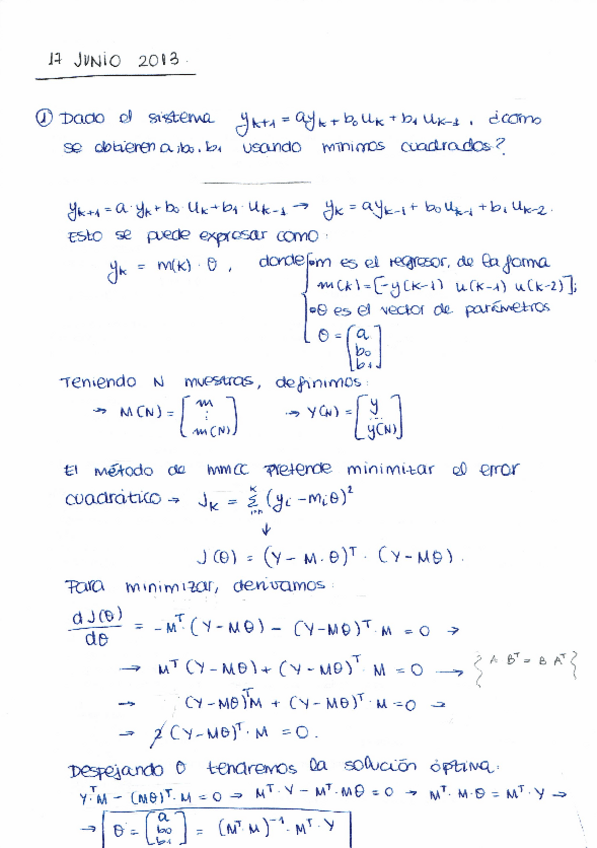 17 JUNIO 2013.
① Dado el sistema y_{k+1} = ay_k + b_0 u_k + b_1 u_{k-1}, ¿cómo
se obtienen a, b_0, b_1 usando mínimos cuadrados?
y_{k+1} = a · y_k + b_0 · u_k + b_1 · u_{k-1} → y_k = ay_{k-1} + b_0 u_{k-1} + b_1 u_{k-2}.
Esto se puede expresar como:
y_k = m(k) · θ, donde { • m es el regresor, de la forma
m(k) = [-y(k-1) u(k-1) u(k-2)];
• θ es el vector de parámetros
θ = [a
b_0
b_1]
Teniendo N muestras, definimos:
→ M(N) = [m ⋮ m(N)] → Y(N) = [y ... y(N)]
El método de mmcc pretende minimizar el error
cuadrático → J_k = Σ (y_i - m_i θ)^2
↓
J(θ) = (Y - M · θ)^T · (Y - Mθ).
Para minimizar, derivamos:
dJ(θ)/dθ = -M^T (Y - Mθ) - (Y - Mθ)^T · M = 0 →
→ M^T (Y - Mθ) + (Y - Mθ)^T · M = 0 → { A B^T = B A^T }
→ (Y - Mθ)^T M + (Y - Mθ)^T · M = 0 →
→ 2 (Y - Mθ)^T · M = 0.
Despejando θ tendremos la solución óptima:
Y^T · M - (Mθ)^T · M = 0 → M^T · Y - M^T · Mθ = 0 → M^T · M · θ = M^T · Y →
→ θ = [a b_0 b_1] = (M^T M)^{-1} · M^T · Y